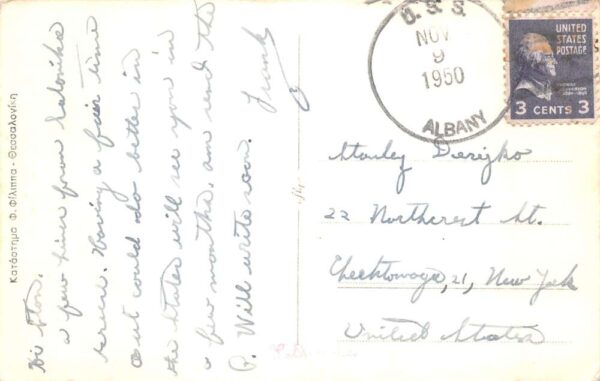 Κατάστημα Φ. Φίλιππα - Θεσσαλονίκη
Hi Stan.
a few lines from Salonika
Greece. Having a fair time
but could do better in
the States will see you in
a few months, am send the
P. Will write soon.
Frank
U. S. S.
NOV
9
1950
ALBANY
UNITED
STATES
POSTAGE
3 CENTS 3
Stanley
22 Northcrest St.
Cheektowaga, 21, New York
United States